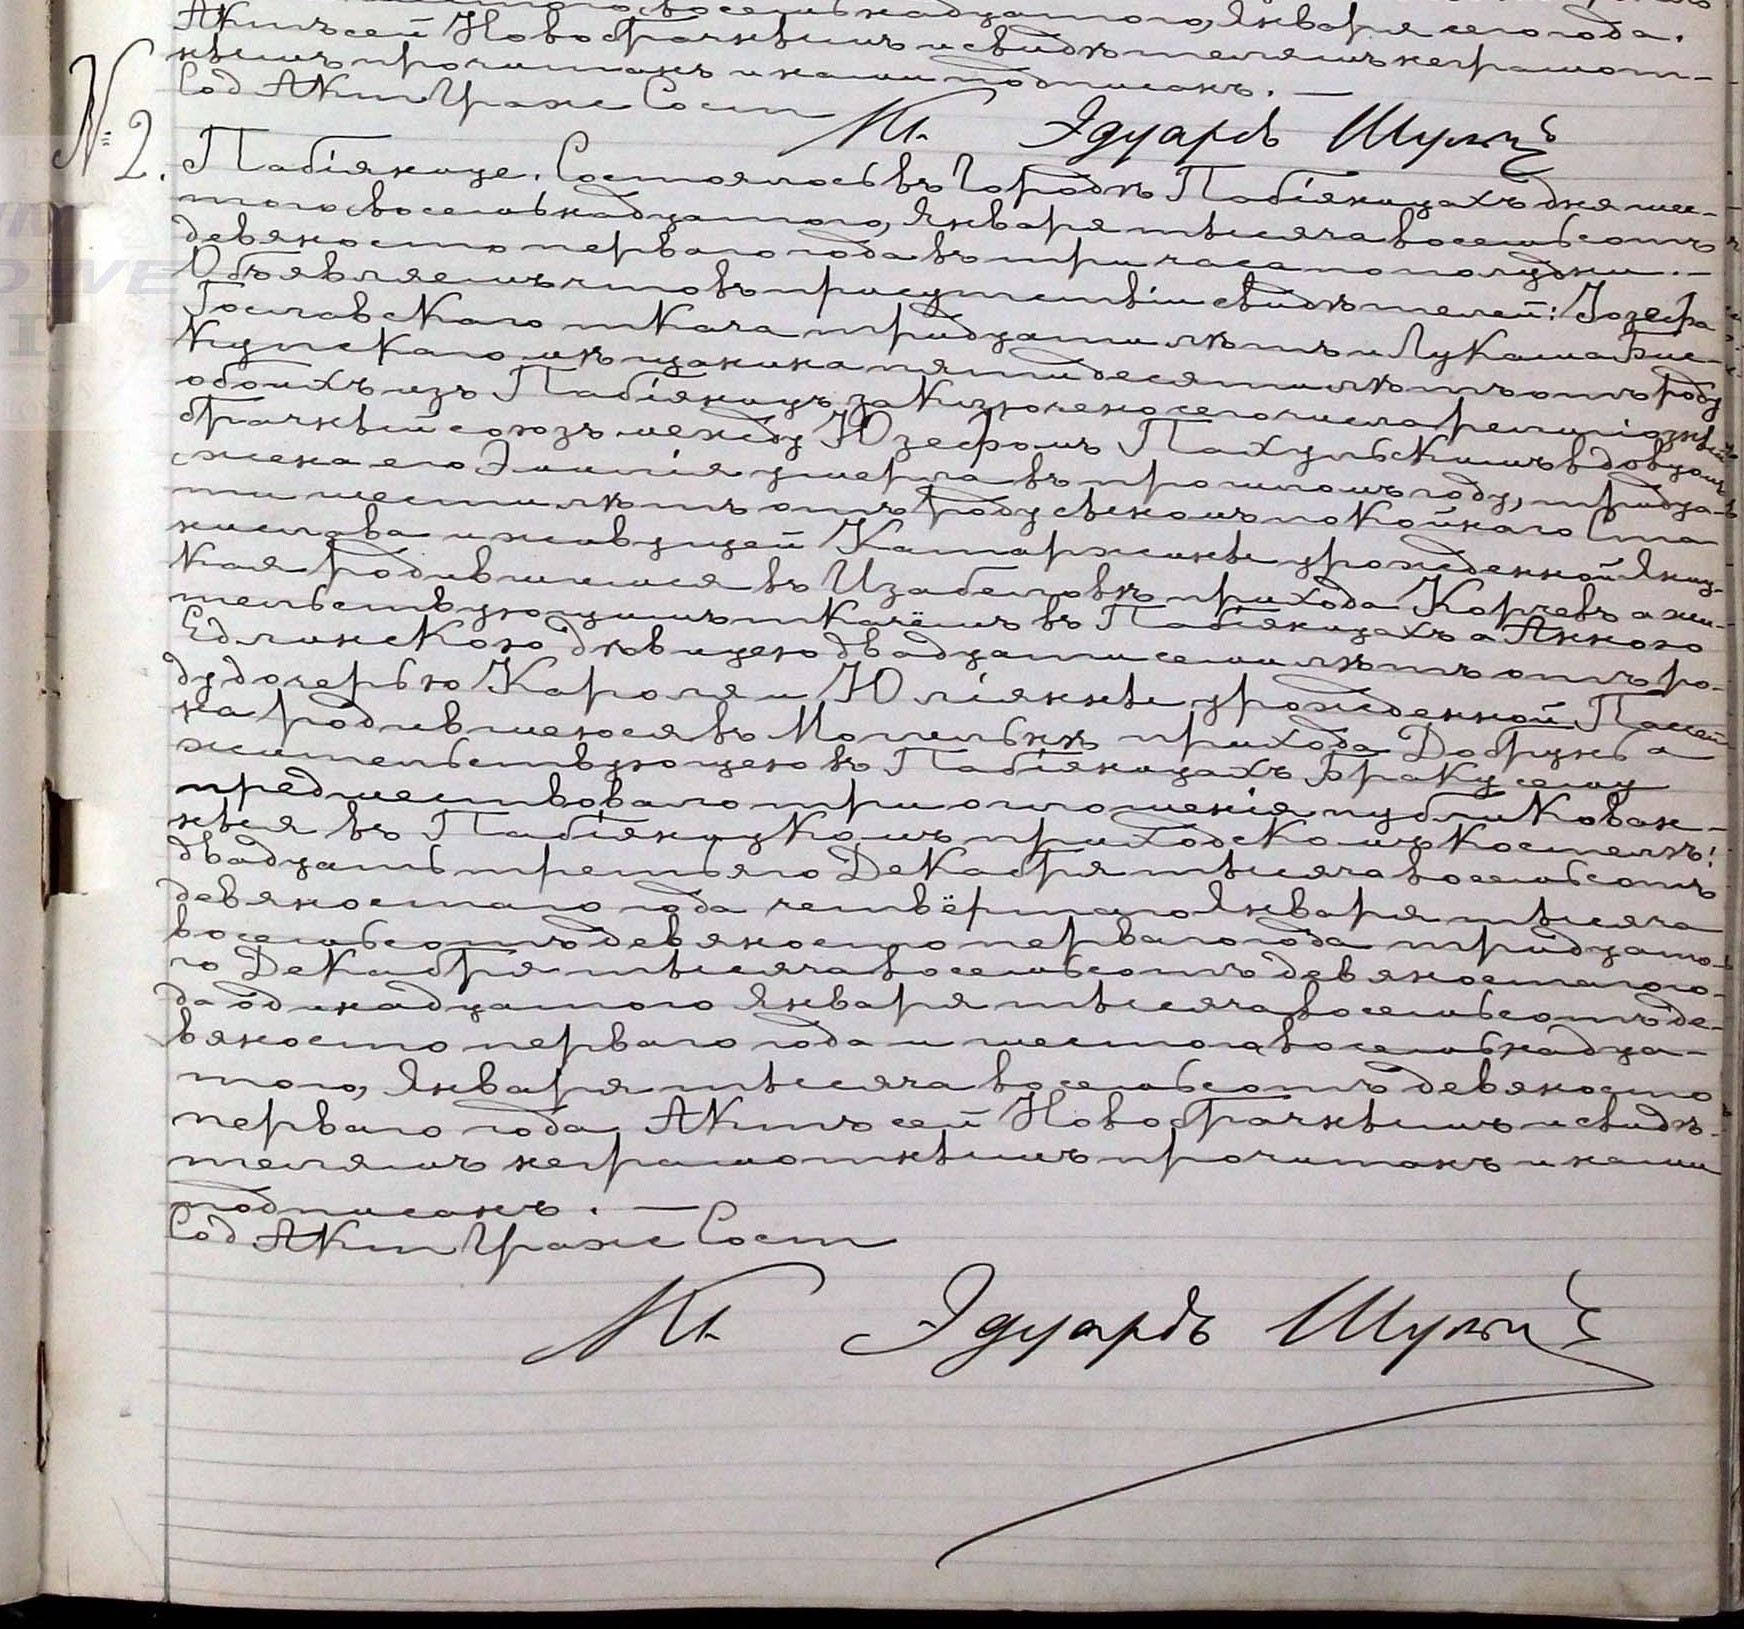 восемнадцатого, Января сего года.
Актъ сей Новобрачнымъ и свидѣтелямъ неграмот-
нымъ прочитанъ и нами подписанъ. —
Сод Акт Граж Сост
Кс. Эдуардъ Шульцъ
№ 2.
Пабіянице. Состоялось въ Городѣ Пабіяницахъ дня шес-
того восемьнадцатого, Января тысяча восемьсотъ
девяносто перваго года въ три часа по полудни. —
Объявляемъ что въ присутствіи свидѣтелей: Іозефа
Гославскаго ткача тридцати лѣтъ и Лукаша Бис-
купскаго мѣщанина пятидесяти лѣтъ отъ роду
обоихъ изъ Пабіяницъ, заключено сего числа религіозный
брачный союзъ между Юзефомъ Пахульскимъ вдовцомъ
жена его Эмилія умерла въ прошломъ году, тридца-
ти шести лѣтъ отъ роду сыномъ покойнаго Ста
нислава и живущей Катаржины урожденной Яниц-
кая родившимся въ Изабеловѣ прихода Корчевъ а жи-
тельствующимъ ткачёмъ въ Пабіяницахъ а Анною
Едлинскою дѣвицею двадцати семи лѣтъ отъ ро-
ду дочерью Кароля и Юліянны урожденной
на родившеюся въ прихода Добрунь а
жительствующею въ Пабіяницахъ Браку сему
предшествовало три оглошенія публикован-
ныя въ Пабіяницкомъ приходскомъ Костелѣ:
двадцать третьяго Декабря тысяча восемьсотъ
девяностаго года четвёртаго Января тысяча
восемьсотъ девяносто перваго года тридцато-
го Декабря тысяча восемьсотъ девяностаго го-
да одинадцатого Января тысяча восемьсотъ де-
вяносто перваго года и шестого, восемьнадца-
того, Января тысяча восемьсотъ девяносто
перваго года Актъ сей Новобрачнымъ и свидѣ-
телямъ неграмотнымъ прочитанъ и нами
подписанъ. —
Сод Акт Граж Сост
Кс. Эдуардъ Шульцъ